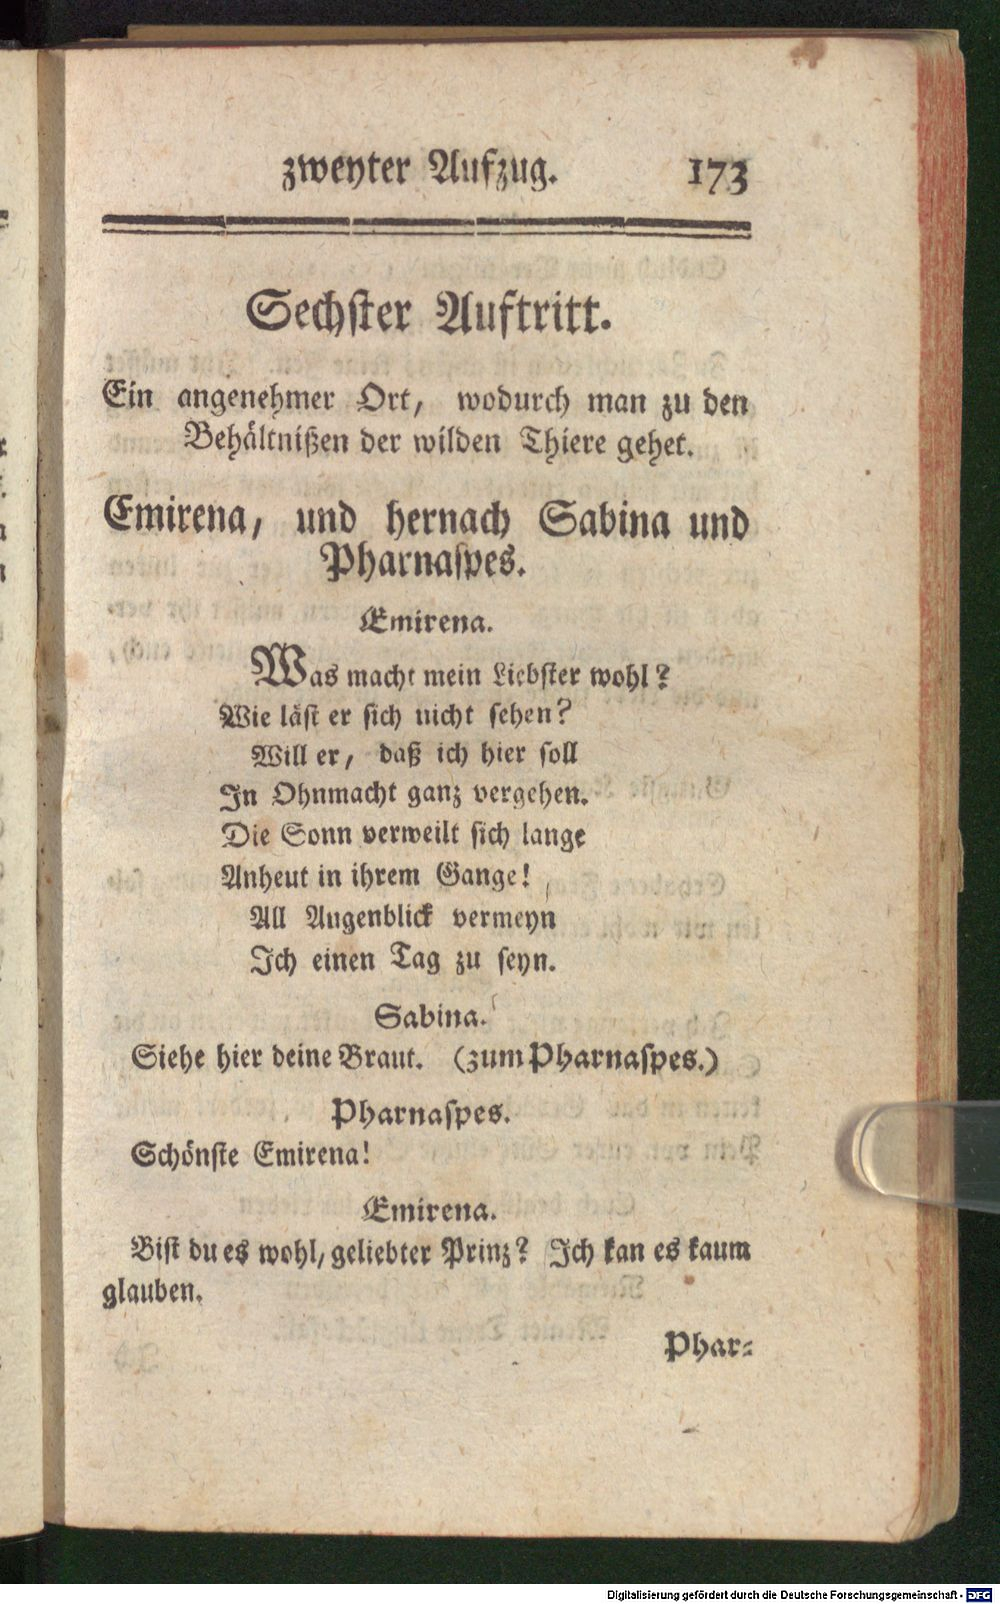 zweyter Aufzug. 173
Sechster Auftritt.
Ein angenehmer Ort, wodurch man zu den
Behältnißen der wilden Thiere gehet.
Emirena, und hernach Sabina und
Pharnaspes.
Emirena.
Was macht mein Liebster wohl?
Wie läst er sich nicht sehen?
Will er, daß ich hier soll
In Ohnmacht ganz vergehen.
Die Sonn verweilt sich lange
Anheut in ihrem Gange!
All Augenblick vermeyn
Ich einen Tag zu seyn.
Sabina.
Siehe hier deine Braut. (zum Pharnaspes.)
Pharnaspes.
Schönste Emirena!
Emirena.
Bist du es wohl, geliebter Prinz? Ich kan es kaum
glauben.
Phar-
Digitalisierung gefördert durch die Deutsche Forschungsgemeinschaft - DFG